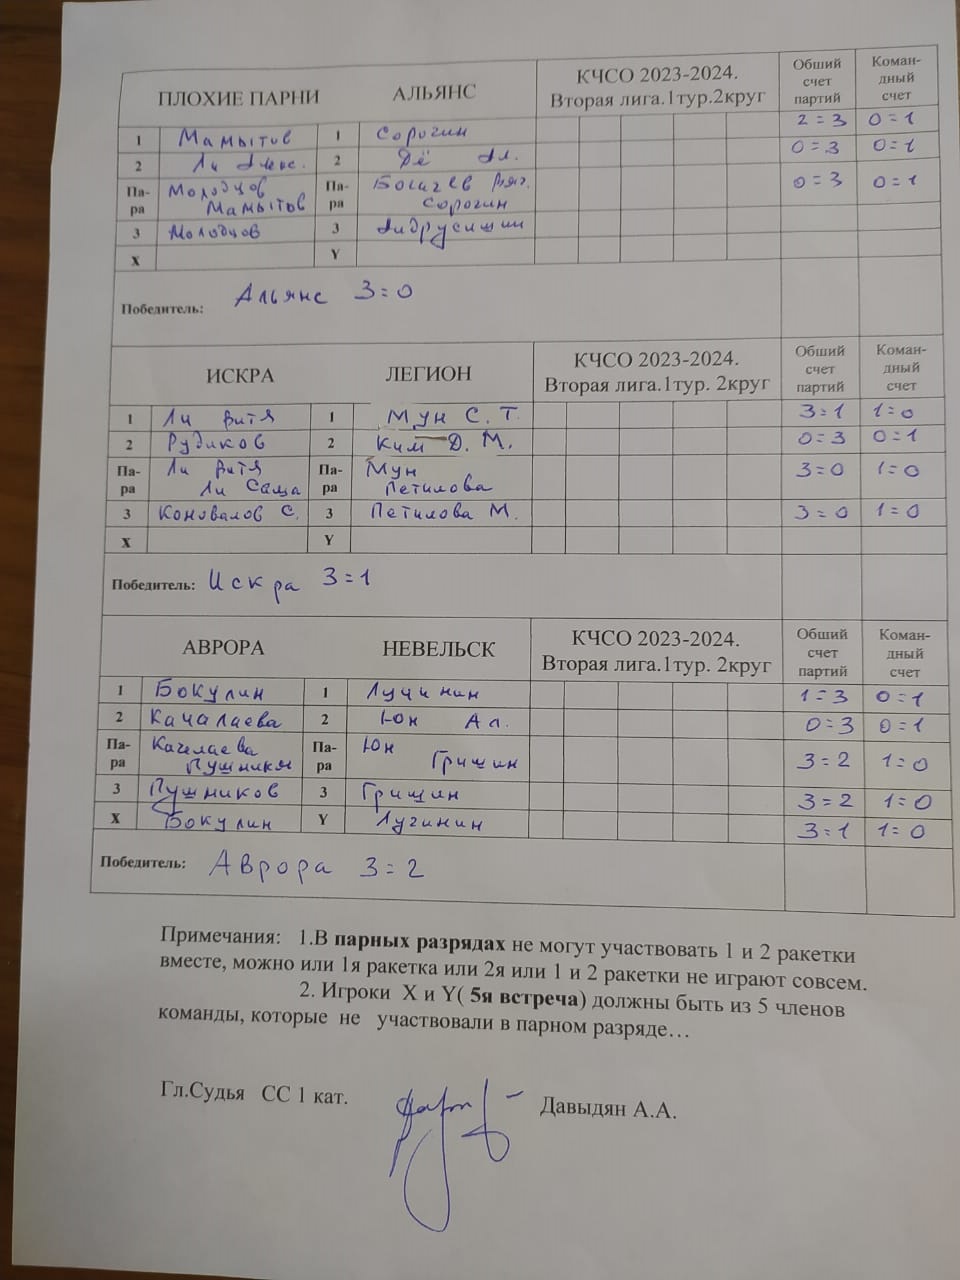 ПЛОХИЕ ПАРНИ АЛЬЯНС КЧСО 2023-2024. Вторая лига.1тур.2круг Общий счет партий Коман-дный счет
1 Мамытов 1 Сорогин 2=3 0=1
2 Ли Алекс. 2 Дё Ал. 0=3 0=1
Па-ра Молодцов Мамытов Па-ра Богачев Сорогин 0=3 0=1
3 Молодцов 3 Андрусишин
X Y
Победитель: Альянс 3=0
ИСКРА ЛЕГИОН КЧСО 2023-2024. Вторая лига.1тур. 2круг Общий счет партий Коман-дный счет
1 Ли Витя 1 Мун С. Т. 3=1 1=0
2 Рудиков 2 Ким Д. М. 0=3 0=1
Па-ра Ли Витя Ли Саша Па-ра Мун Петилова 3=0 1=0
3 Коновалов С. 3 Петилова М. 3=0 1=0
X Y
Победитель: Искра 3=1
АВРОРА НЕВЕЛЬСК КЧСО 2023-2024. Вторая лига.1тур. 2круг Общий счет партий Коман-дный счет
1 Бокулин 1 Лучинин 1=3 0=1
2 Качалаева 2 Юн Ал. 0=3 0=1
Па-ра Качалаева Пушников Па-ра Юн Гришин 3=2 1=0
3 Пушников 3 Гришин 3=2 1=0
X Бокулин Y Лучинин 3=1 1=0
Победитель: Аврора 3=2
Примечания: 1.В парных разрядах не могут участвовать 1 и 2 ракетки
вместе, можно или 1я ракетка или 2я или 1 и 2 ракетки не играют совсем.
2. Игроки X и Y( 5я встреча) должны быть из 5 членов
команды, которые не участвовали в парном разряде…
Гл.Судья СС 1 кат. Давыдян А.А.